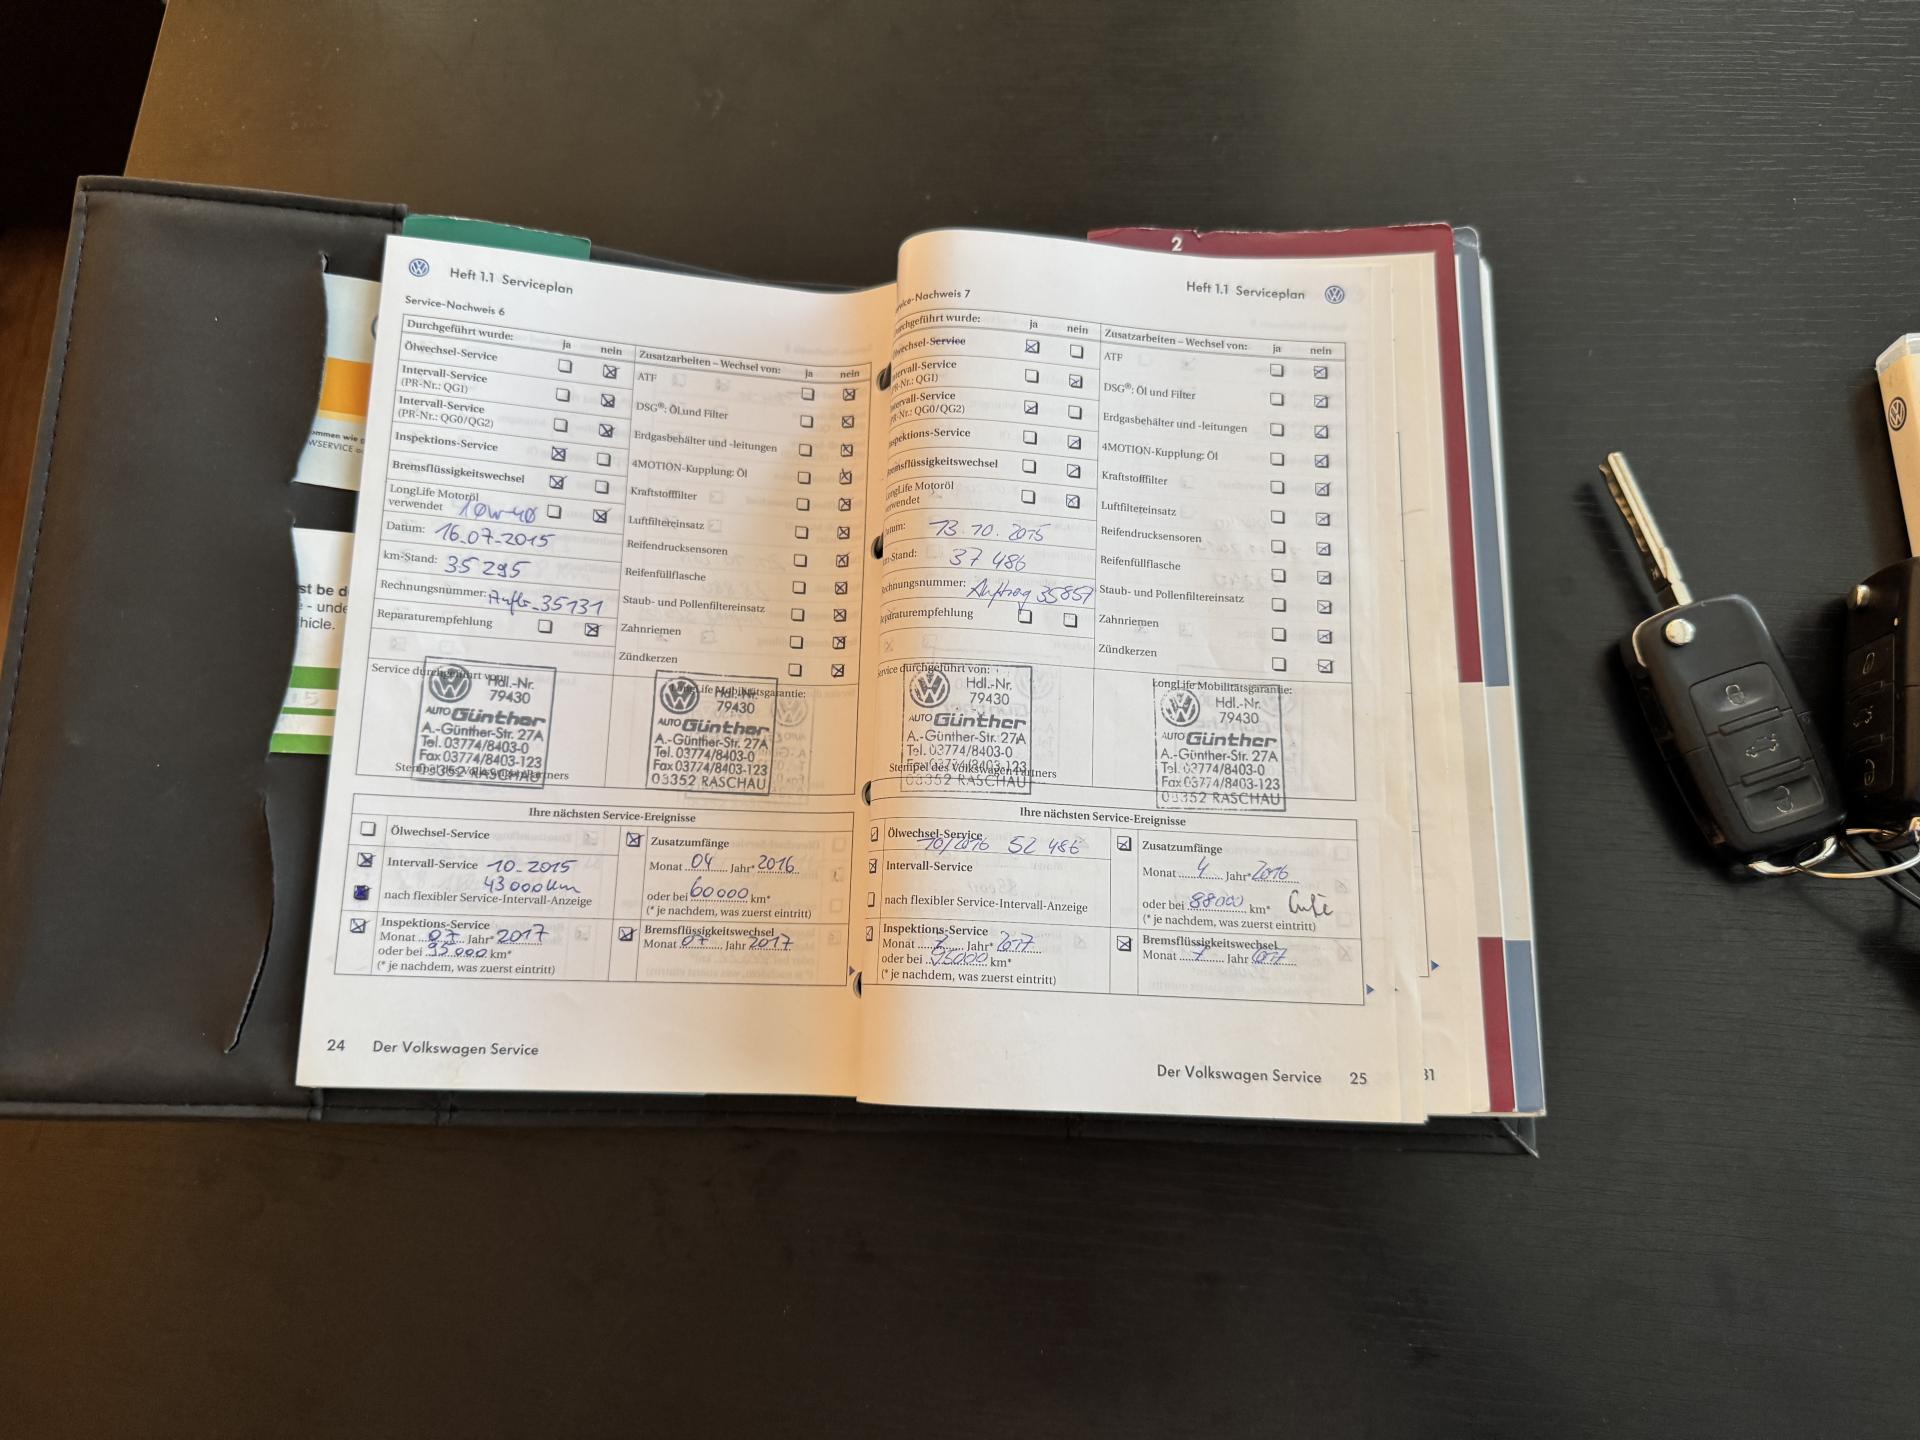 Heft 1.1 Serviceplan
Service-Nachweis 6
Durchgeführt wurde: ja nein
Ölwechsel-Service
Intervall-Service
(PR-Nr.: QG1)
Intervall-Service
(PR-Nr.: QG0/QG2)
Inspektions-Service
Bremsflüssigkeitswechsel
LongLife Motoröl
verwendet 10W-40
Datum: 16.07.2015
km-Stand: 35 295
Rechnungsnummer: Auftr. 35131
Reparaturempfehlung
Zusatzarbeiten – Wechsel von: ja nein
ATF
DSG®: Öl und Filter
Erdgasbehälter und -leitungen
4MOTION-Kupplung: Öl
Kraftstofffilter
Luftfiltereinsatz
Reifendrucksensoren
Reifenfüllflasche
Staub- und Pollenfiltereinsatz
Zahnriemen
Zündkerzen
Service durchgeführt von:
Hdl.-Nr.
79430
AUTO Günther
A.-Günther-Str. 27A
Tel. 03774/8403-0
Fax 03774/8403-123
08352 RASCHAU
Stempel des Volkswagen Partners
LongLife Mobilitätsgarantie:
Hdl.-Nr.
79430
AUTO Günther
A.-Günther-Str. 27A
Tel. 03774/8403-0
Fax 03774/8403-123
08352 RASCHAU
Ihre nächsten Service-Ereignisse
Ölwechsel-Service
Intervall-Service 10.2015
43000km
nach flexibler Service-Intervall-Anzeige
Inspektions-Service
Monat 07 Jahr* 2017
oder bei 95000 km*
(* je nachdem, was zuerst eintritt)
Zusatzumfänge
Monat 04 Jahr* 2016
oder bei 60000 km*
(* je nachdem, was zuerst eintritt)
Bremsflüssigkeitswechsel
Monat 07 Jahr 2017
24 Der Volkswagen Service
2
Heft 1.1 Serviceplan
Service-Nachweis 7
Durchgeführt wurde: ja nein
Ölwechsel-Service
Intervall-Service
(PR-Nr.: QG1)
Intervall-Service
(PR-Nr.: QG0/QG2)
Inspektions-Service
Bremsflüssigkeitswechsel
LongLife Motoröl
verwendet
Datum: 13.10.2015
km-Stand: 37 486
Rechnungsnummer: Auftrag 35857
Reparaturempfehlung
Zusatzarbeiten – Wechsel von: ja nein
ATF
DSG®: Öl und Filter
Erdgasbehälter und -leitungen
4MOTION-Kupplung: Öl
Kraftstofffilter
Luftfiltereinsatz
Reifendrucksensoren
Reifenfüllflasche
Staub- und Pollenfiltereinsatz
Zahnriemen
Zündkerzen
Service durchgeführt von:
Hdl.-Nr.
79430
AUTO Günther
A.-Günther-Str. 27A
Tel. 03774/8403-0
Fax 03774/8403-123
08352 RASCHAU
Stempel des Volkswagen Partners
LongLife Mobilitätsgarantie:
Hdl.-Nr.
79430
AUTO Günther
A.-Günther-Str. 27A
Tel. 03774/8403-0
Fax 03774/8403-123
08352 RASCHAU
Ihre nächsten Service-Ereignisse
Ölwechsel-Service
10/2016 52 486
Intervall-Service
nach flexibler Service-Intervall-Anzeige
Inspektions-Service
Monat 7 Jahr* 2017
oder bei 95000 km*
(* je nachdem, was zuerst eintritt)
Zusatzumfänge
Monat 4 Jahr* 2016
oder bei 88000 km*
(* je nachdem, was zuerst eintritt)
Bremsflüssigkeitswechsel
Monat 7 Jahr 2017
Der Volkswagen Service 25
31